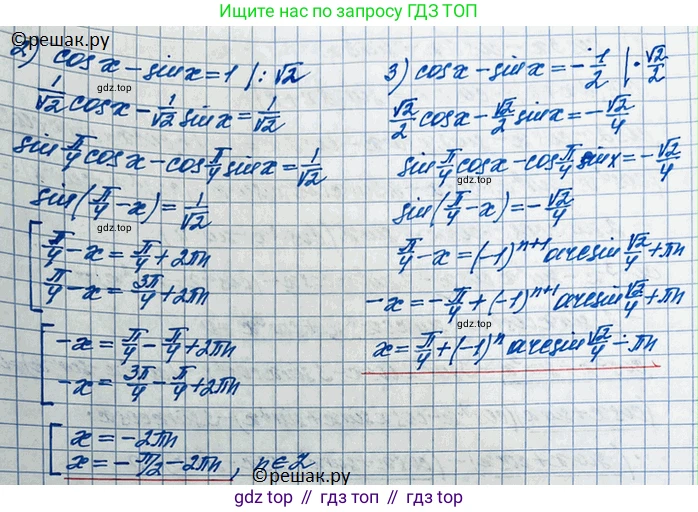 Ищите нас по запросу ГДЗ ТОП
©решак.ру
2) cos x - sin x = 1 | : √2
1/√2 cos x - 1/√2 sin x = 1/√2
sin π/4 cos x - cos π/4 sin x = 1/√2
sin(π/4 - x) = 1/√2
[ π/4 - x = π/4 + 2πn
π/4 - x = 3π/4 + 2πn
[ -x = π/4 - π/4 + 2πn
-x = 3π/4 - π/4 + 2πn
[ x = -2πn
x = -π/2 - 2πn, n∈Z
3) cos x - sin x = -1/2 | · √2/2
√2/2 cos x - √2/2 sin x = -√2/4
sin π/4 cos x - cos π/4 sin x = -√2/4
sin(π/4 - x) = -√2/4
π/4 - x = (-1)ⁿ⁺¹ arcsin √2/4 + πn
-x = -π/4 + (-1)ⁿ⁺¹ arcsin √2/4 + πn
x = π/4 + (-1)ⁿ arcsin √2/4 - πn
gdz.top
gdz.top
gdz.top
gdz.top
gdz.top
gdz.top
©решак.ру
gdz top // гдз топ // gdz.top